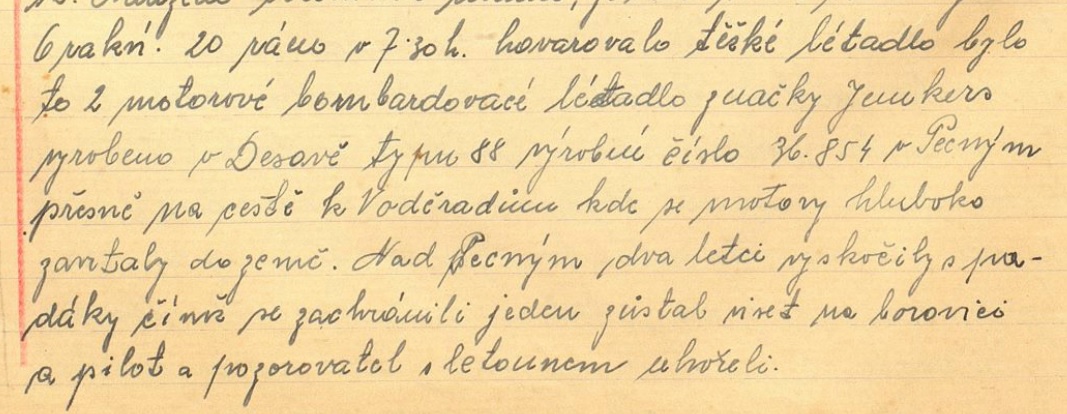 6 rakví. 20 ráno v 7.30h. havarovalo těžké létadlo bylo
to 2 motorové bombardovací létadlo značky Junkers
vyrobeno v Desavě typu 88 výrobní číslo 36.854 v Pecným
přesně na cestě k Voděradům kde se motory hluboko
zavrtaly do země. Nad Pecným dva letci vyskočily s pa-
dáky čímž se zachránili jeden zůstal viset na borovici
a pilot a pozorovatel s letounem uhořeli.